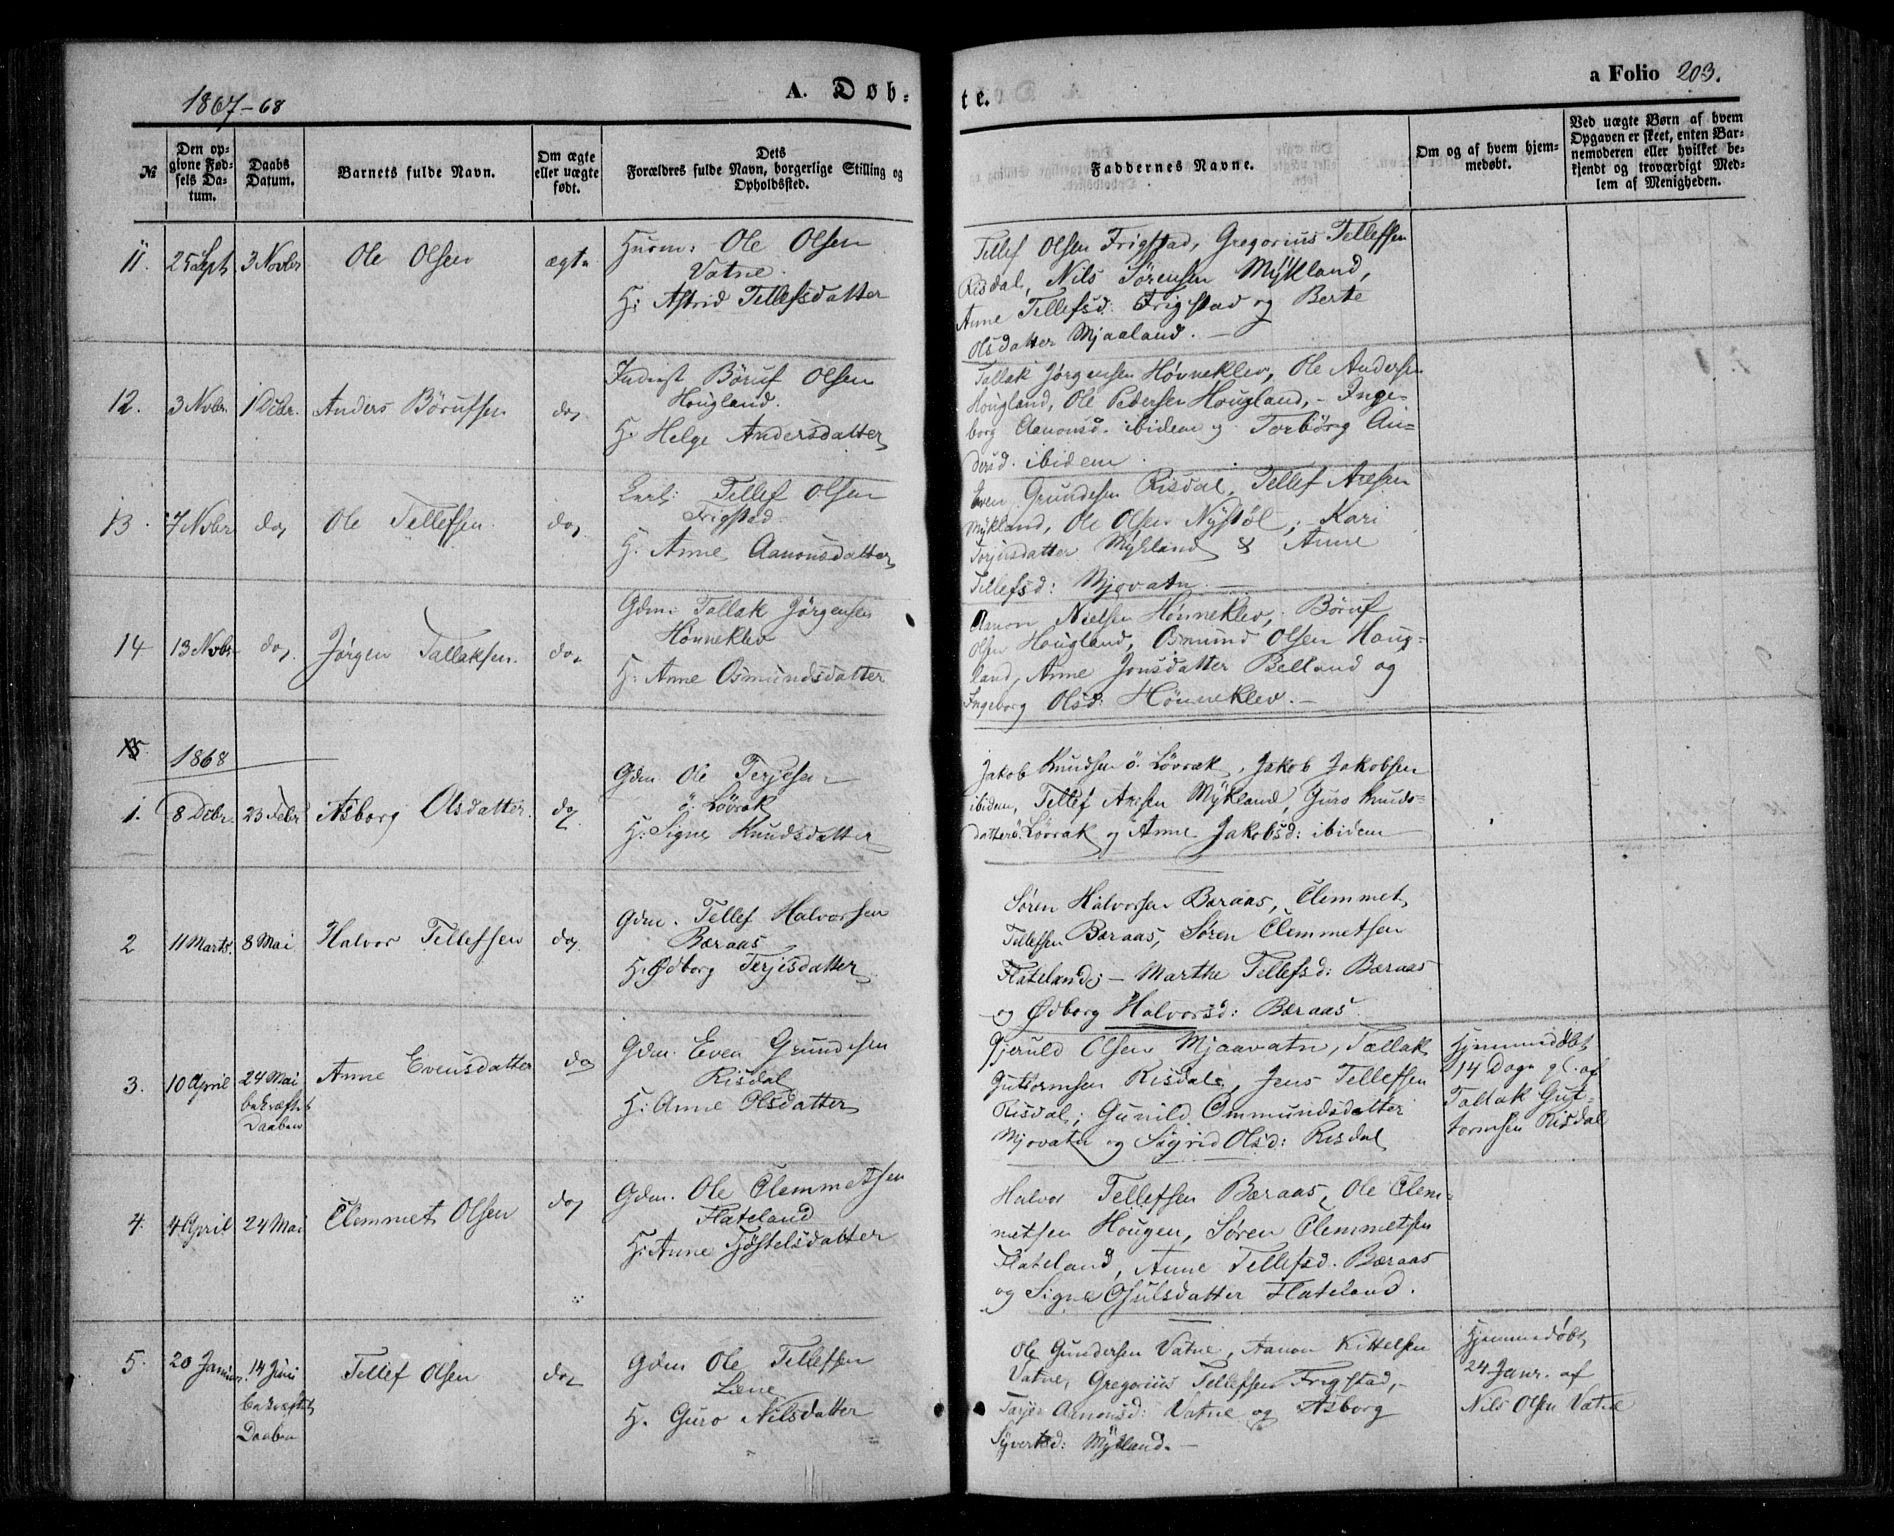 1867-68
A. Døb-
te.
a Folio 203.
№
Den op-
givne Fød-
sels Da-
tum.
Daabs
Datum.
Barnets fulde Navn.
Om ægte
eller uægte
født.
Dets
Forældres fulde Navn, borgerlige Stilling og
Opholdssted.
Faddernes Navne.
Om og af hvem hjem-
medøbt.
Ved uægte Børn af hvem
Opgaven er skeet, enten Bar-
nemoderen eller hvilket be-
kjendt og troværdigt Med-
lem af Menigheden.
11. 25 Sept 3 Novbr Ole Olsen ægte
Huusm: Ole Olsen
Vatne.
H: Astrid Tellefsdatter
Tellef Olsen Frigstad, Gregorius Tellefsen
Risdal, Nils Sørensen Mykland,
Anne Tellefsd: Frigstad og Berte
Olsdatter Mjaaland. —
12. 3 Novbr. 1 Decbr. Anders Børufsen do
Inderst Børuf Olsen
Hougland.
H. Helge Andersdatter
Tallak Jørgensen Hovneklev, Ole Andersen
Hougland, Ole Pedersen Hougland, – Inge-
borg Aanonsd. ibidem og Torbørg An-
dersd. ibidem.
13. 7 Novbr do Ole Tellefsen. do
Tellef Olsen
Frigstad.
H. Anne Aanonsdatter
Even Grundesen Risdal, Tellef Aresen
Mykland, Ole Olsen Nystøl; Kari
Torjusdatter Mykland & Anne
Tellefsd: Mjovatn. —
14 13 Novbr do. Jørgen Tallaksen. do
Gdm. Tallak Jørgensen
Hovneklev
H. Anne Osmundsdatter
Aanon Nielsen Hovneklev, Børuf
Olsen Hougland, Osmund Olsen Houg-
land, Anne Jonsdatter Belland og
Ingeborg Olsd: Høvneklev. —
15. 1868
1. 8 Debr. 23 Febr Asborg Olsdatter. do
Gdm. Ole Terjesen
ö. Løvrak
H: Signe Knudsdatter
Jakob Knudsen ö. Løvrak, Jakob Jakobsen
ibidem, Tellef Aresen Mykland, Guro Knuds-
datter ö. Løvrak og Anne Jakobsd: ibidem
2 11 Marts. 8 Mai Halvor Tellefsen do
Gdm. Tellef Halvorsen
Bæraas
H: Ødborg Terjesdatter
Søren Halvorsen Bæraas, Clemmet
Tellefsen Bæraas, Søren Clemmetsen
Flateland; – Marthe Tellefsd: Bæraas
og Ødborg Halvorsd: Bæraas.
3. 10 April 24 Mai
bekræftet
Daaben
Anne Evensdatter do
Gdm. Even Grundesen
Risdal
H: Anne Olsdatter
Gjeruld Olsen Mjaavatn, Tallak
Guttormsen Risdal, Jens Tellefsen
Risdal; Gunild Ommundsdatter
Mjovatn og Sigrid Olsd: Risdal
Hjemmedøbt
14 Dage gl. af
Tallak Gut-
tormsen Risdal
4. 4 April 24 Mai Clemmet Olsen do
Gdm. Ole Clemmetsen
Flateland
H: Anne Tjøstelsdatter
Halvor Tellefsen Bæraas, Ole Clem-
metsen Hougen, Søren Clemmetsen
Flateland, Anne Tellefsd. Bæraas
og Signe Gjulsdatter Flateland.
5. 20 Januar. 14 Juni
bekræftet
Daaben
Tellef Olsen do
Gdm Ole Tellefsen
Liene
H. Guro Nilsdatter
Ole Gundersen Vatne, Aanon Kittelsen
Vatne, Gregorius Tellefsen Frigstad, –
Torjer Aanonsd: Vatne og Asborg
Syvertsd: Mykland. —
Hjemmedøbt
24 Janr. af
Nils Olsen Vatne